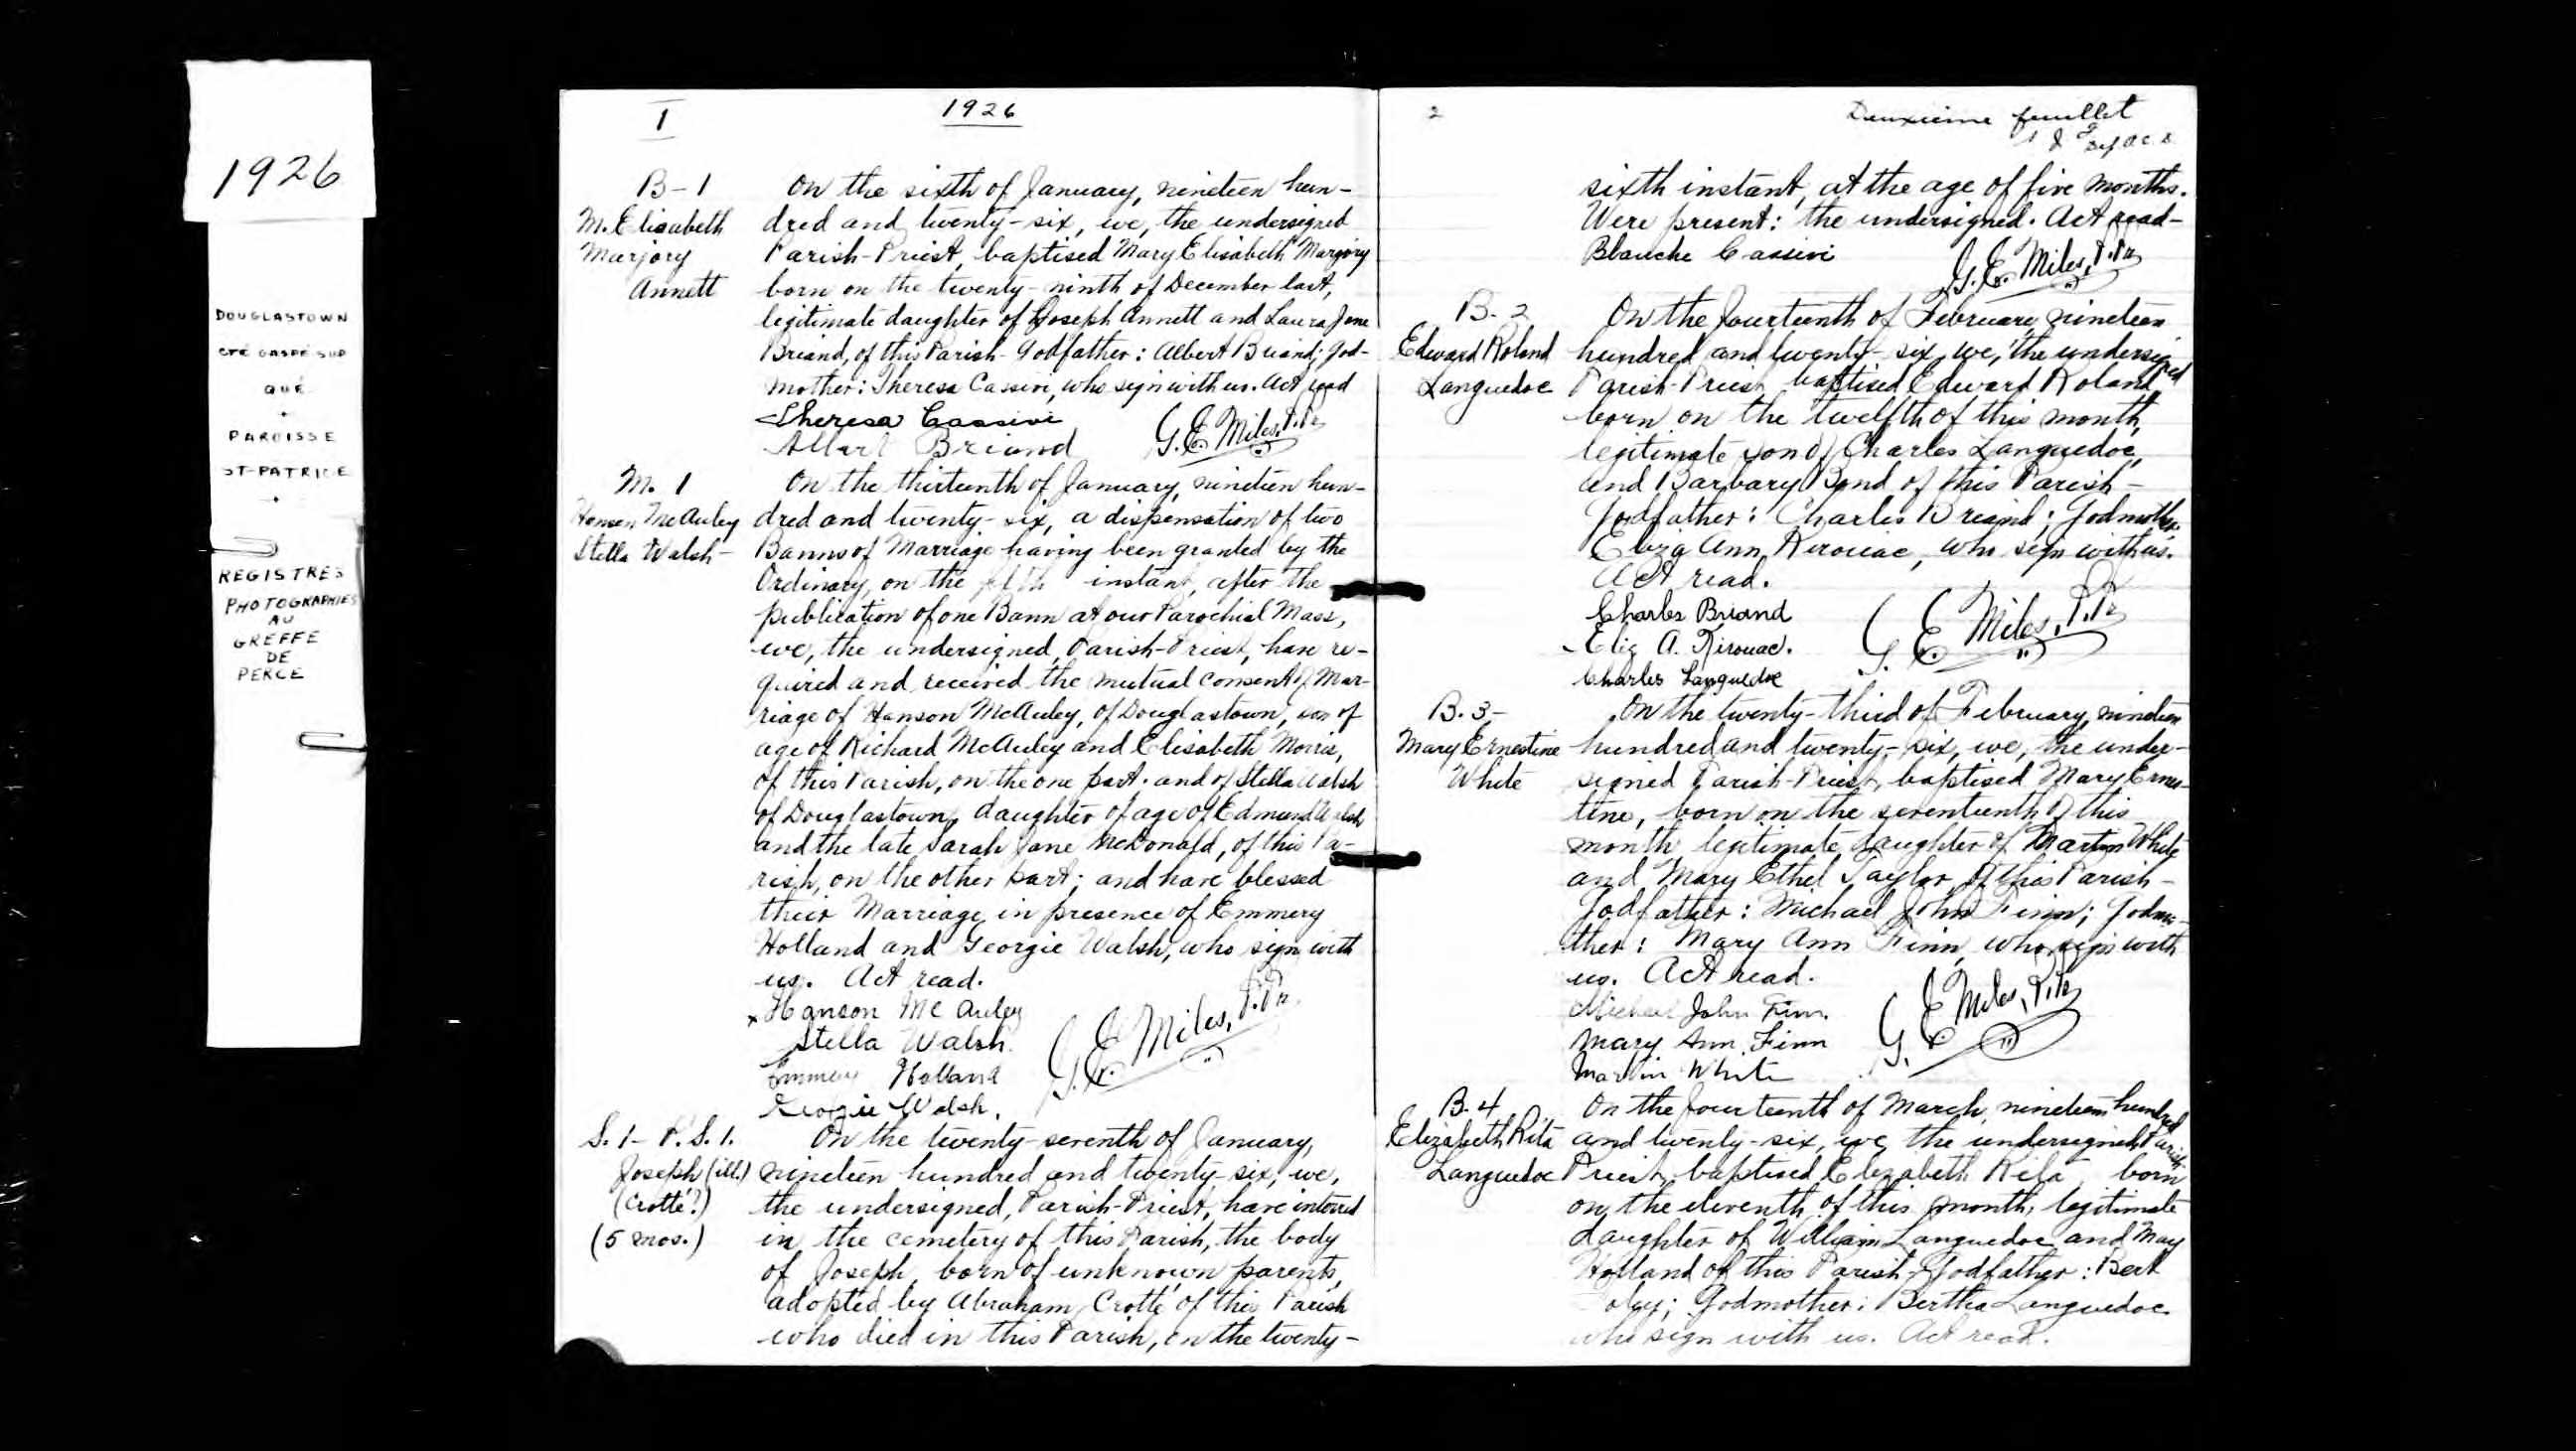 1926
DOUGLASTOWN
CTÉ GASPÉ SUD
QUÉ
PAROISSE
ST-PATRICE
REGISTRES
PHOTOGRAPHIES
AU
GREFFE
DE
PERCE
1
1926
B-1
M. Elisabeth
Marjory
Annett
On the sixth of January, nineteen hun-
dred and twenty-six, we, the undersigned
Parish-Priest, baptised Mary Elisabeth Marjory
born on the twenty-ninth of December last,
legitimate daughter of Joseph Annett and Laura Jane
Briand, of this Parish- Godfather: Albert Briand; God-
mother: Theresa Cassivi, who sign with us. Act read
Theresa Cassivi
Albert Briand
G.E. Miles, P.Pr.
M. 1
Hanson McAuley
Stella Walsh-
On the thirteenth of January, nineteen hun-
dred and twenty-six, a dispensation of two
Banns of Marriage having been granted by the
Ordinary, on the instant, after the
publication of one Bann at our Parochial Mass,
we, the undersigned, Parish-Priest, have re-
quired and received the mutual consent of Mar-
riage of Hanson McAuley, of Douglastown, son of
age of Richard McAuley and Elisabeth Morris,
of this Parish, on the one part. and of Stella Walsh
of Douglastown, daughter of age of Edmund Walsh
and the late Sarah Jane McDonald, of this Pa-
rish, on the other part; and have blessed
their Marriage in presence of Emmery
Holland and Georgie Walsh, who sign with
us. Act read.
x Hanson McAuley
Stella Walsh.
Emmery Holland
Georgie Walsh.
G.E. Miles, P.Pr.
S. 1- P.S. 1.
Joseph (ill.)
(Crotté?)
(5 mos.)
On the twenty-seventh of January,
nineteen hundred and twenty-six, we,
the undersigned, Parish-Priest, have interred
in the cemetery of this Parish, the body
of Joseph, born of unknown parents,
adopted by Abraham Crotté of this Parish
who died in this Parish, on the twenty-
2
Deuxième feuillet
sixth instant, at the age of five months.
Were present: the undersigned. Act read-
Blanche Cassivi
G.E. Miles, P.Pr.
B-2
Edward Roland
Languedoc
On the fourteenth of February, nineteen
hundred and twenty-six, we, the undersigned
Parish-Priest, baptised Edward Roland,
born on the twelfth of this month,
legitimate son of Charles Languedoc,
and Barbary Bond of this Parish-
Godfather: Charles Briand; Godmother:
Eliza Ann Kirouac, who sign with us.
Act read.
Charles Briand
Eliz A. Kirouac.
Charles Languedoc
G.E. Miles, P.Pr.
B. 3-
Mary Ernestine
White
On the twenty-third of February, nineteen
hundred and twenty-six, we, the under-
signed Parish-Priest, baptised Mary Ernes-
tine, born on the seventeenth of this
month, legitimate daughter of Martin White
and Mary Ethel Taylor, of this Parish-
Godfather: Michael John Finn; Godmo-
ther: Mary Ann Finn, who sign with
us. Act read.
Michael John Finn.
Mary Ann Finn
Martin White
G.E. Miles, P.Pr.
B. 4
Elizabeth Rita
Languedoc
On the fourteenth of March, nineteen hundred
and twenty-six, we, the undersigned Parish
Priest, baptised Elizabeth Rita, born
on the eleventh of this month, legitimate
daughter of William Languedoc and May
Holland of this Parish- Godfather: Bert
Godmother: Bertha Languedoc
who sign with us. Act read.